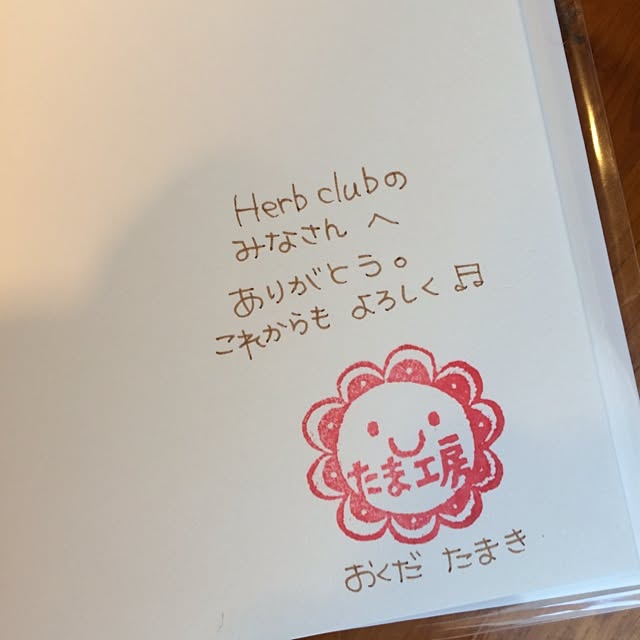 Herb clubの
みなさん へ
ありがとう。
これからも よろしく♬
たま工房
おくだ たまき